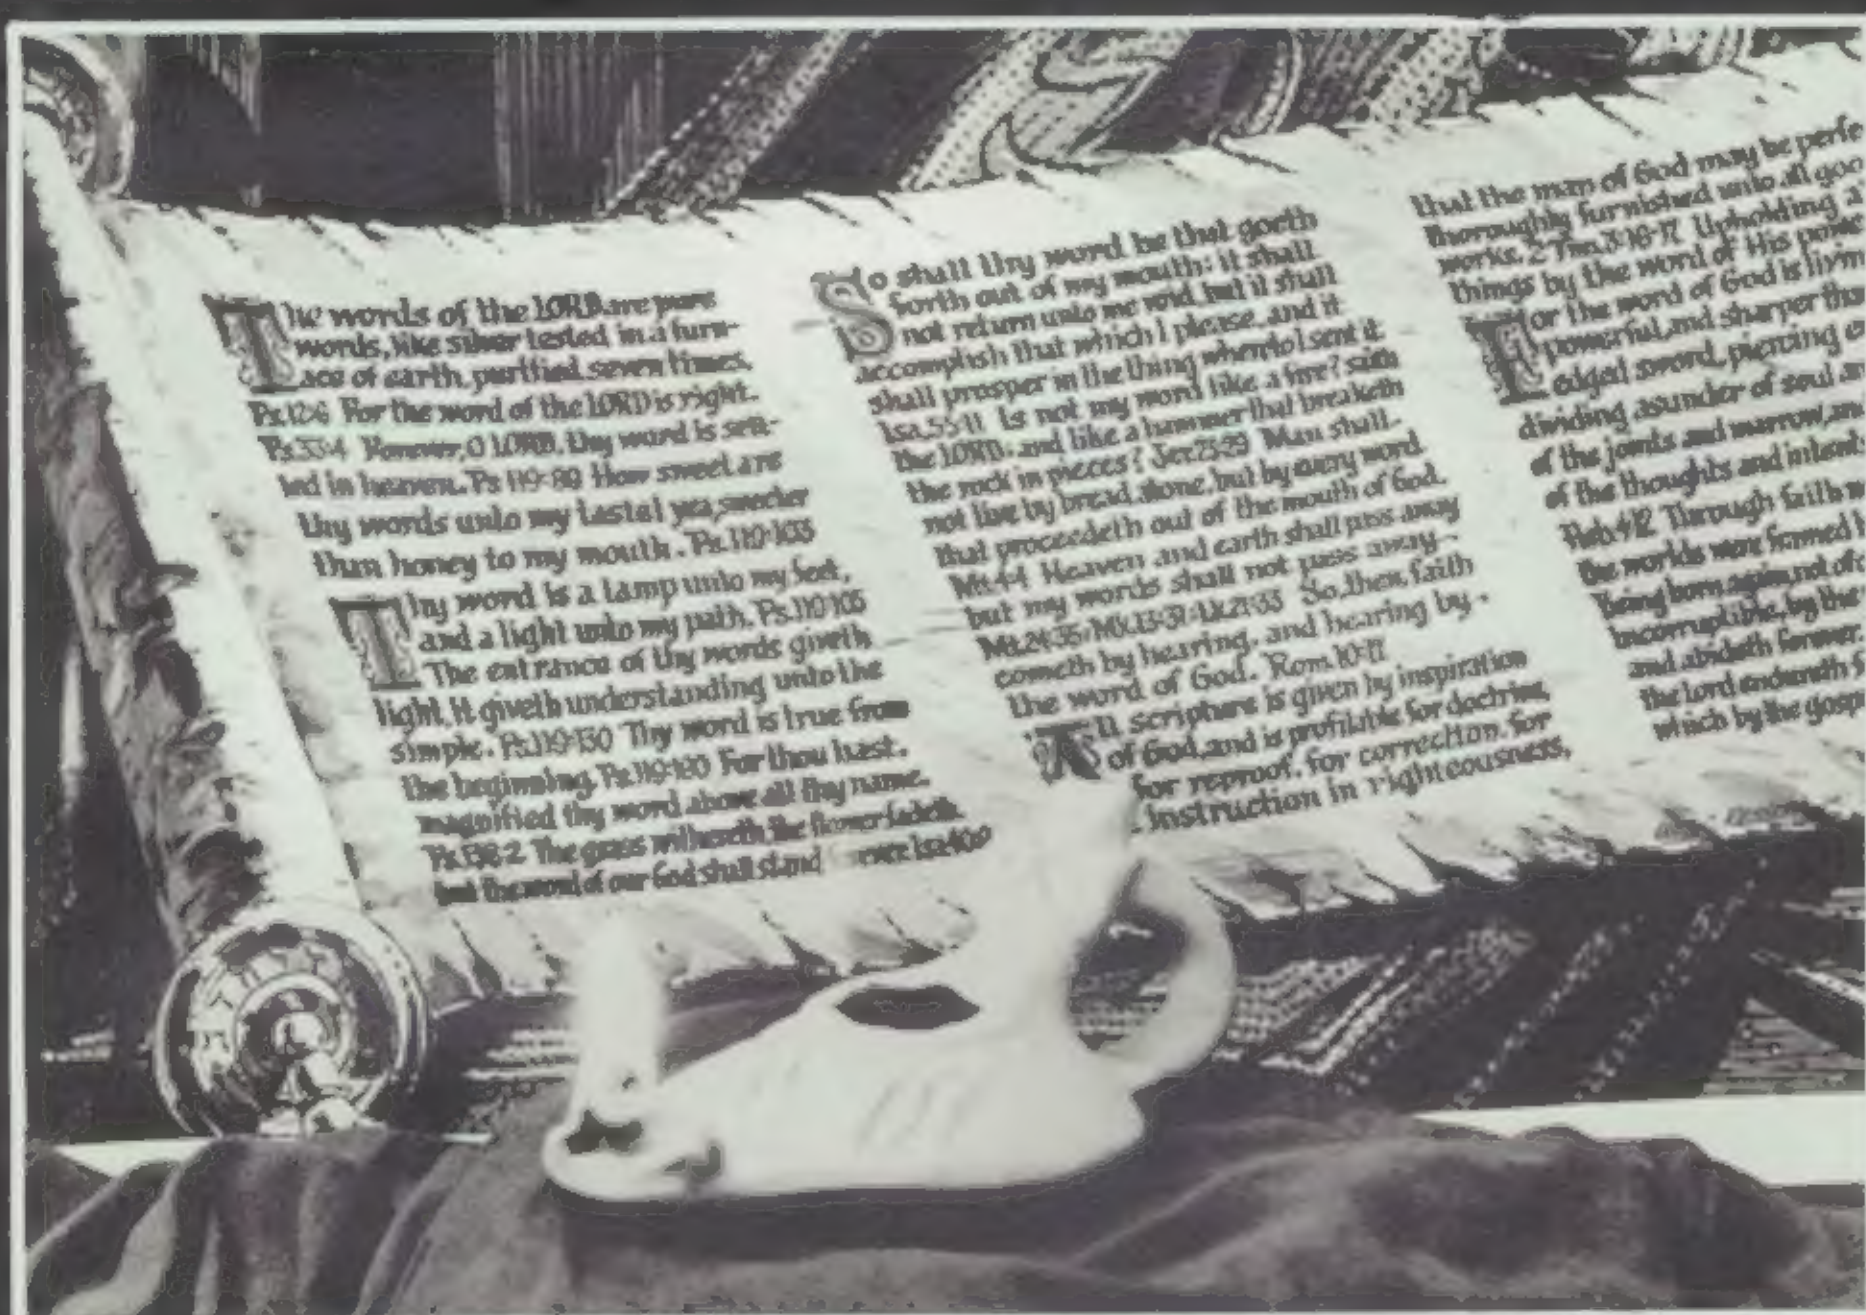 The words of the LORD are pure
words, like silver tested in a furn-
ace of earth, purified seven times.
Ps.12:6 For the word of the LORD is right.
Ps.33:4 Forever, O LORD, thy word is sett-
led in heaven. Ps 119:89 How sweet are
thy words unto my taste! yea, sweeter
than honey to my mouth. Ps.119:103
Thy word is a lamp unto my feet,
and a light unto my path. Ps.119:105
The entrance of thy words giveth
light, it giveth understanding unto the
simple. Ps.119:130 Thy word is true from
the beginning. Ps.119:160 For thou hast
magnified thy word above all thy name.
Ps.138:2 The grass withereth the flower fadeth
but the word of our God shall stand ever. Isa.40:
So shall thy word be that goeth
forth out of my mouth: it shall
not return unto me void, but it shall
accomplish that which I please, and it
shall prosper in the thing whereto I sent it.
Isa.55:11 Is not my word like a fire? saith
the LORD; and like a hammer that breaketh
the rock in pieces? Jer.23:29 Man shall
not live by bread alone, but by every word
that proceedeth out of the mouth of God.
Mt.4:4 Heaven and earth shall pass away
but my words shall not pass away.
Mt.24:35/Mk.13:31/Lk.21:33 So, then, faith
cometh by hearing, and hearing by
the word of God. Rom.10:17
All scripture is given by inspiration
of God, and is profitable for doctrine
for reproof, for correction, for
instruction in righteousness,
that the man of God may be perfe
thoroughly furnished unto all goo
works. 2 Tim.3:16-17 Upholding a
things by the word of His powe
For the word of God is livin
powerful, and sharper than
edged sword, piercing e
dividing asunder of soul an
of the joints and marrow, an
of the thoughts and intent
Heb.4:12 Through faith w
the worlds were framed b
Being born again, not of c
incorruptible, by the
and abideth forever.
the Lord endureth f
which by the gosp